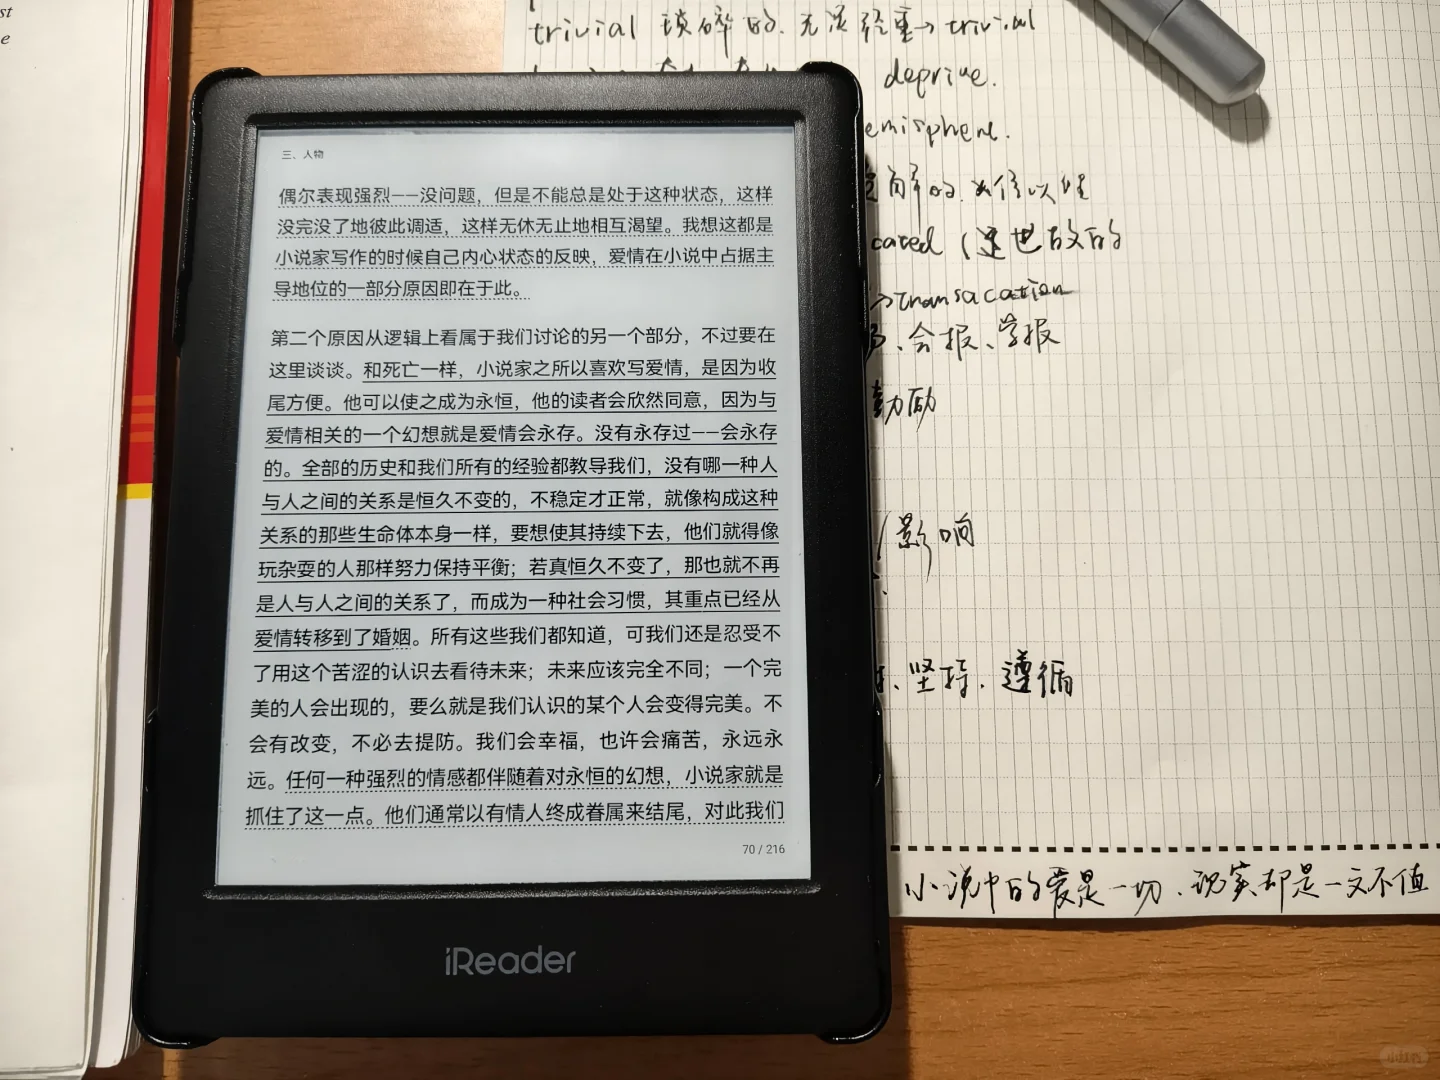 st
e
trivial 琐碎的.无足轻重→trivial
deprive.
emisphere.
cated
→transacation
会报、学报
励
影响
坚持.遵循
三、人物
偶尔表现强烈——没问题，但是不能总是处于这种状态，这样
没完没了地彼此调适，这样无休无止地相互渴望。我想这都是
小说家写作的时候自己内心状态的反映，爱情在小说中占据主
导地位的一部分原因即在于此。
第二个原因从逻辑上看属于我们讨论的另一个部分，不过要在
这里谈谈。和死亡一样，小说家之所以喜欢写爱情，是因为收
尾方便。他可以使之成为永恒，他的读者会欣然同意，因为与
爱情相关的一个幻想就是爱情会永存。没有永存过——会永存
的。全部的历史和我们所有的经验都教导我们，没有哪一种人
与人之间的关系是恒久不变的，不稳定才正常，就像构成这种
关系的那些生命体本身一样，要想使其持续下去，他们就得像
玩杂耍的人那样努力保持平衡；若真恒久不变了，那也就不再
是人与人之间的关系了，而成为一种社会习惯，其重点已经从
爱情转移到了婚姻。所有这些我们都知道，可我们还是忍受不
了用这个苦涩的认识去看待未来；未来应该完全不同；一个完
美的人会出现的，要么就是我们认识的某个人会变得完美。不
会有改变，不必去提防。我们会幸福，也许会痛苦，永远永
远。任何一种强烈的情感都伴随着对永恒的幻想，小说家就是
抓住了这一点。他们通常以有情人终成眷属来结尾，对此我们
70 / 216
小说中的爱是一切.现实却是一文不值
iReader